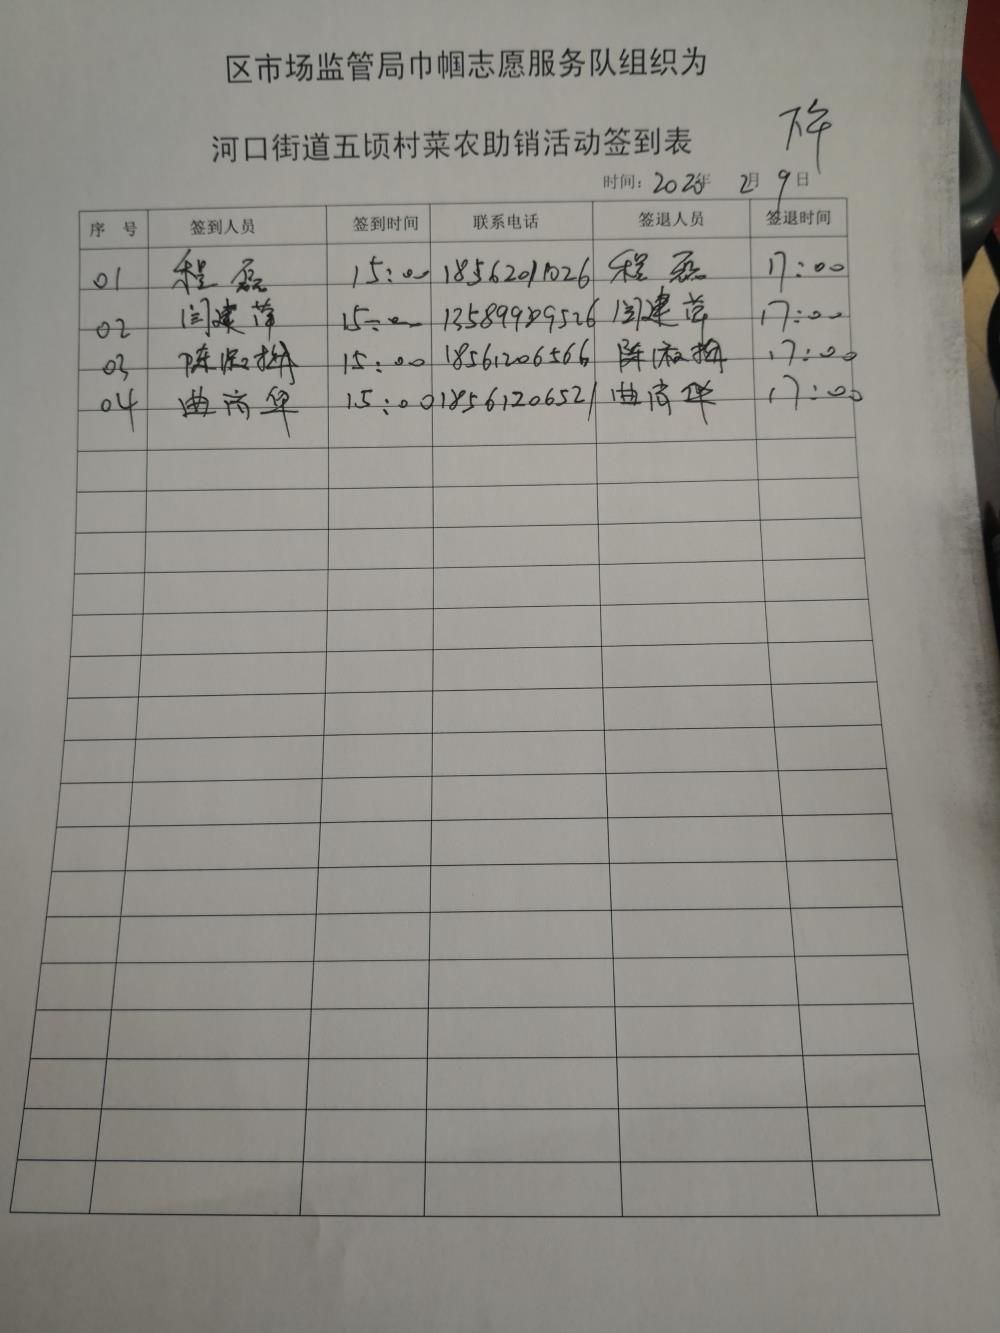 区市场监管局巾帼志愿服务队组织为
河口街道五顷村菜农助销活动签到表 下午
时间：202年 2月 9日
序 号 签到人员 签到时间 联系电话 签退人员 签退时间
01 程磊 15:00 18562011026 程磊 17:00
02 闫建萍 15:00 13589989526 闫建萍 17:00
03 陈淑梅 15:00 18561206566 陈淑梅 17:00
04 曲 华 15:00 18561206521 曲 华 17:00